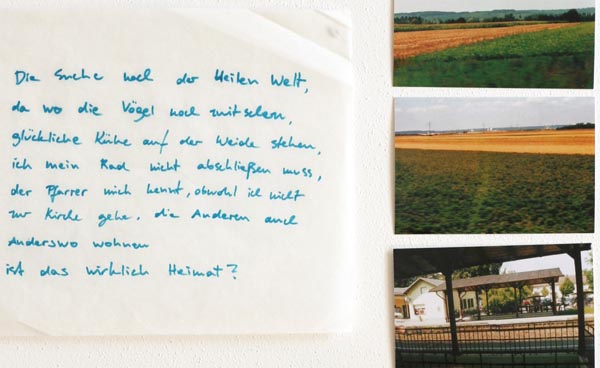 Die Suche nach der Heilen Welt,
da wo die Vögel noch zwitschern,
glückliche Kühe auf der Weide stehen,
ich mein Rad nicht abschließen muss,
der Pfarrer mich kennt, obwohl ich nicht
zur Kirche gehe. die Anderen auch
Anderswo wohnen
ist das wirklich Heimat?